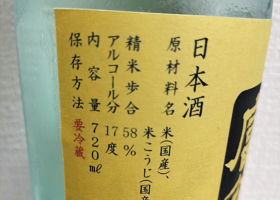 日本酒
原材料名 米(国産)、
米こうじ(国産
精米歩合 58%
アルコール分 17度
内容量 720ml
保存方法 要冷蔵